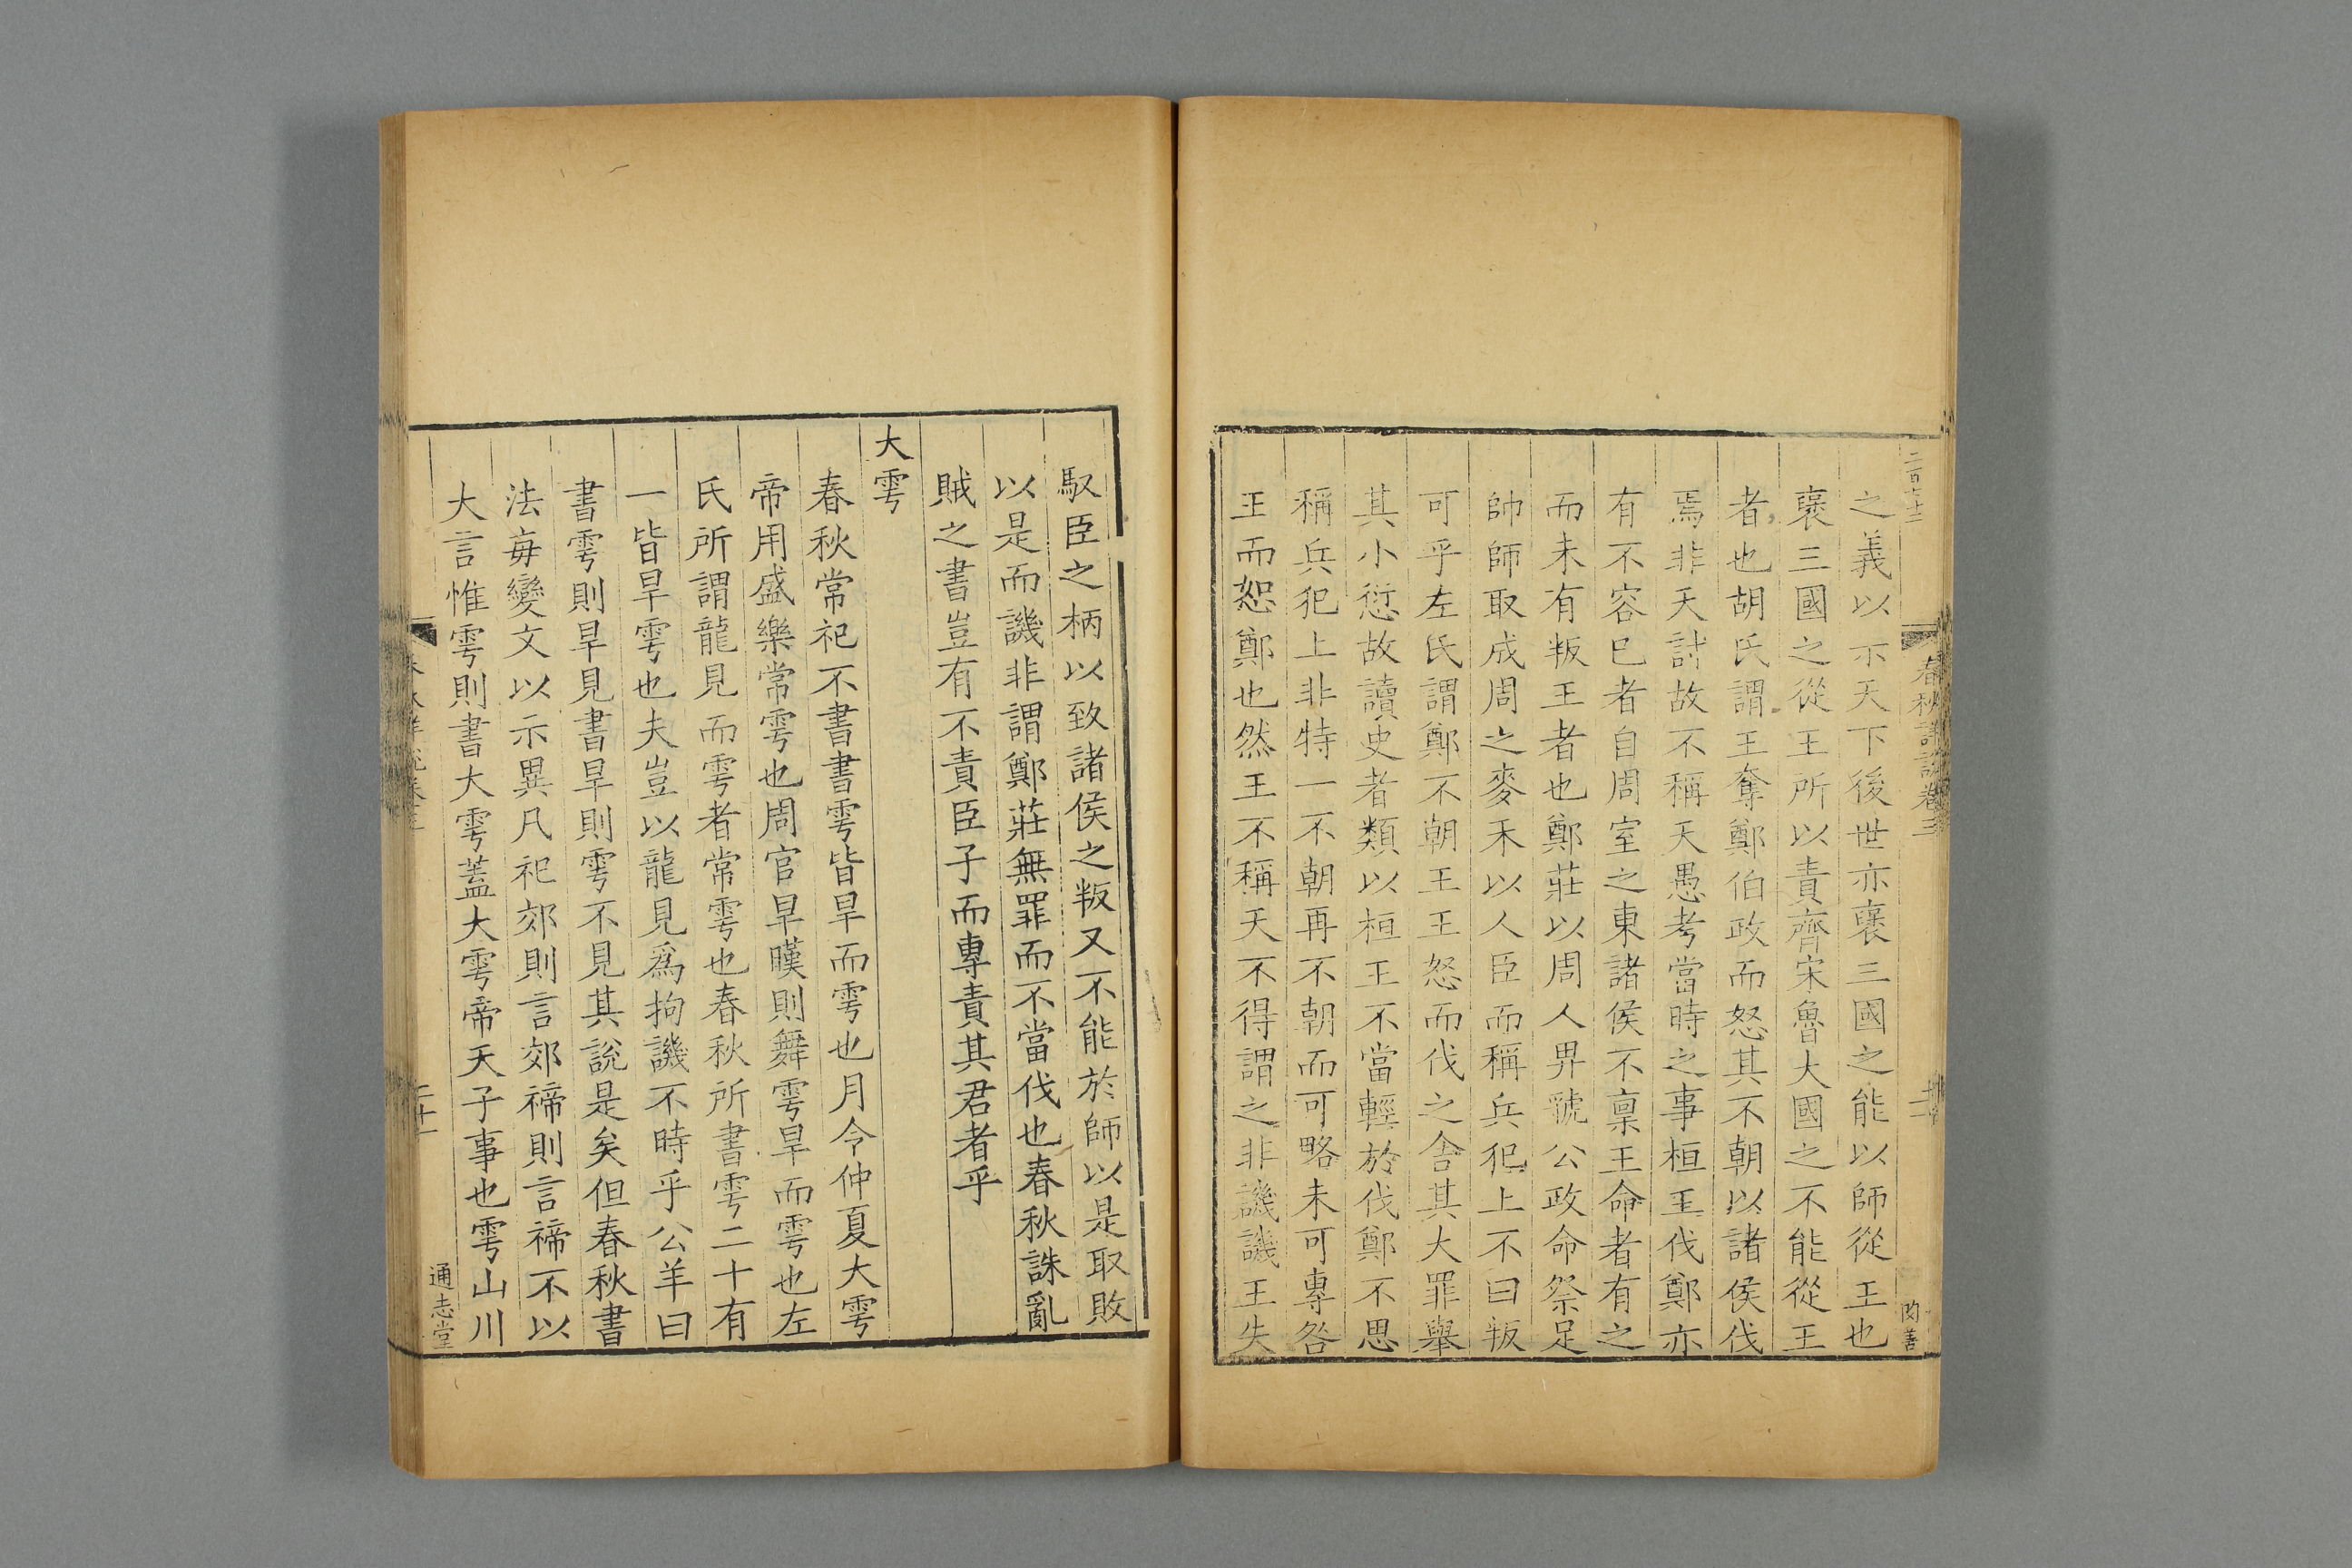 春秋詳說卷三
之義以示天下後世亦褒三國之能以師從王也
褒三國之從王所以責齊宋魯大國之不能從王
者也胡氏謂王奪鄭伯政而怒其不朝以諸侯伐
焉非天討故不稱天愚考當時之事桓王伐鄭亦
有不容已者自周室之東諸侯不禀王命者有之
而未有叛王者也鄭莊以周人畀虢公政命祭足
帥師取成周之麥禾以人臣而稱兵犯上不曰叛
可乎左氏謂鄭不朝王王怒而伐之舍其大罪舉
其小愆故讀史者類以桓王不當輕於伐鄭不思
稱兵犯上非特一不朝再不朝而可略未可專咎
王而恕鄭也然王不稱天不得謂之非譏譏王失
馭臣之柄以致諸侯之叛又不能於師以是取敗
以是而譏非謂鄭莊無罪而不當伐也春秋誅亂
賊之書豈有不責臣子而專責其君者乎
大雩
春秋常祀不書書雩皆旱而雩也月令仲夏大雩
帝用盛樂常雩也周官旱暵則舞雩旱而雩也左
氏所謂龍見而雩者常雩也春秋所書雩二十有
一皆旱雩也夫豈以龍見爲拘譏不時乎公羊曰
書雩則旱見書旱則雩不見其說是矣但春秋書
法毎變文以示異凡祀郊則言郊禘則言禘不以
大言惟雩則書大雩蓋大雩帝天子事也雩山川
通志堂